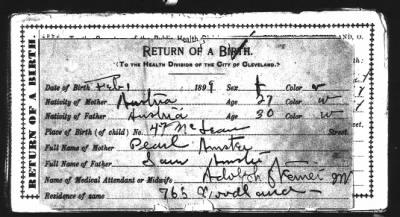 RETURN OF A BIRTH.
RETURN OF A BIRTH.
(TO THE HEALTH DIVISION OF THE CITY OF CLEVELAND.)
Date of Birth Feb 1 1899 Sex f Color w
Nativity of Mother Austria Age 27 Color w
Nativity of Father Austria Age 30 Color w
Place of Birth (of child) No. 47 McLean Street.
Full Name of Mother Pearl Amster
Full Name of Father Sam Amster
Name of Medical Attendant or Midwife Adolph Steiner M
Residence of same 765 Woodland
RETURN OF A BIRTH.